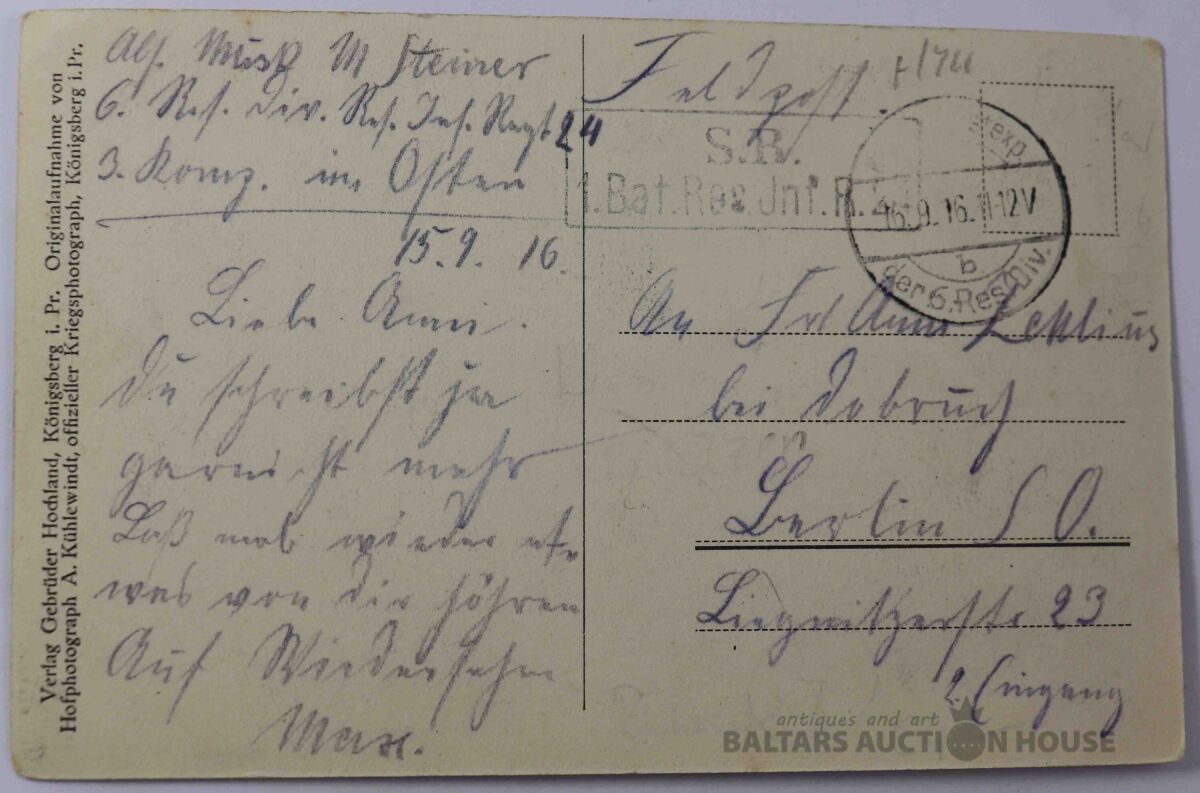 Verlag Gebrüder Hochland, Königsberg i. Pr. Originalaufnahme von
Hofphotograph A. Kühlewindt, offizieller Kriegsphotograph, Königsberg i. Pr.
Abs. Musk M Steiner
6. Res. Div. Res. Inf. Regt 24
3. Komp. im Osten
15.9.16.
Liebe Anni.
Du schreibst ja
garnicht mehr
Laß mal wieder et-
was von dir höhren
Auf Wiedersehn
Max.
Feldpost.
S.B.
1.Bat.Res.Inf.R.24
exp.
16.9.16.11-12V
b
der 6.Res.Div.
An Frl Anni
bei Dobruch
Berlin S O.
Liegnitzerstr 23
2. Eingang
antiques and art
BALTARS AUCTION HOUSE